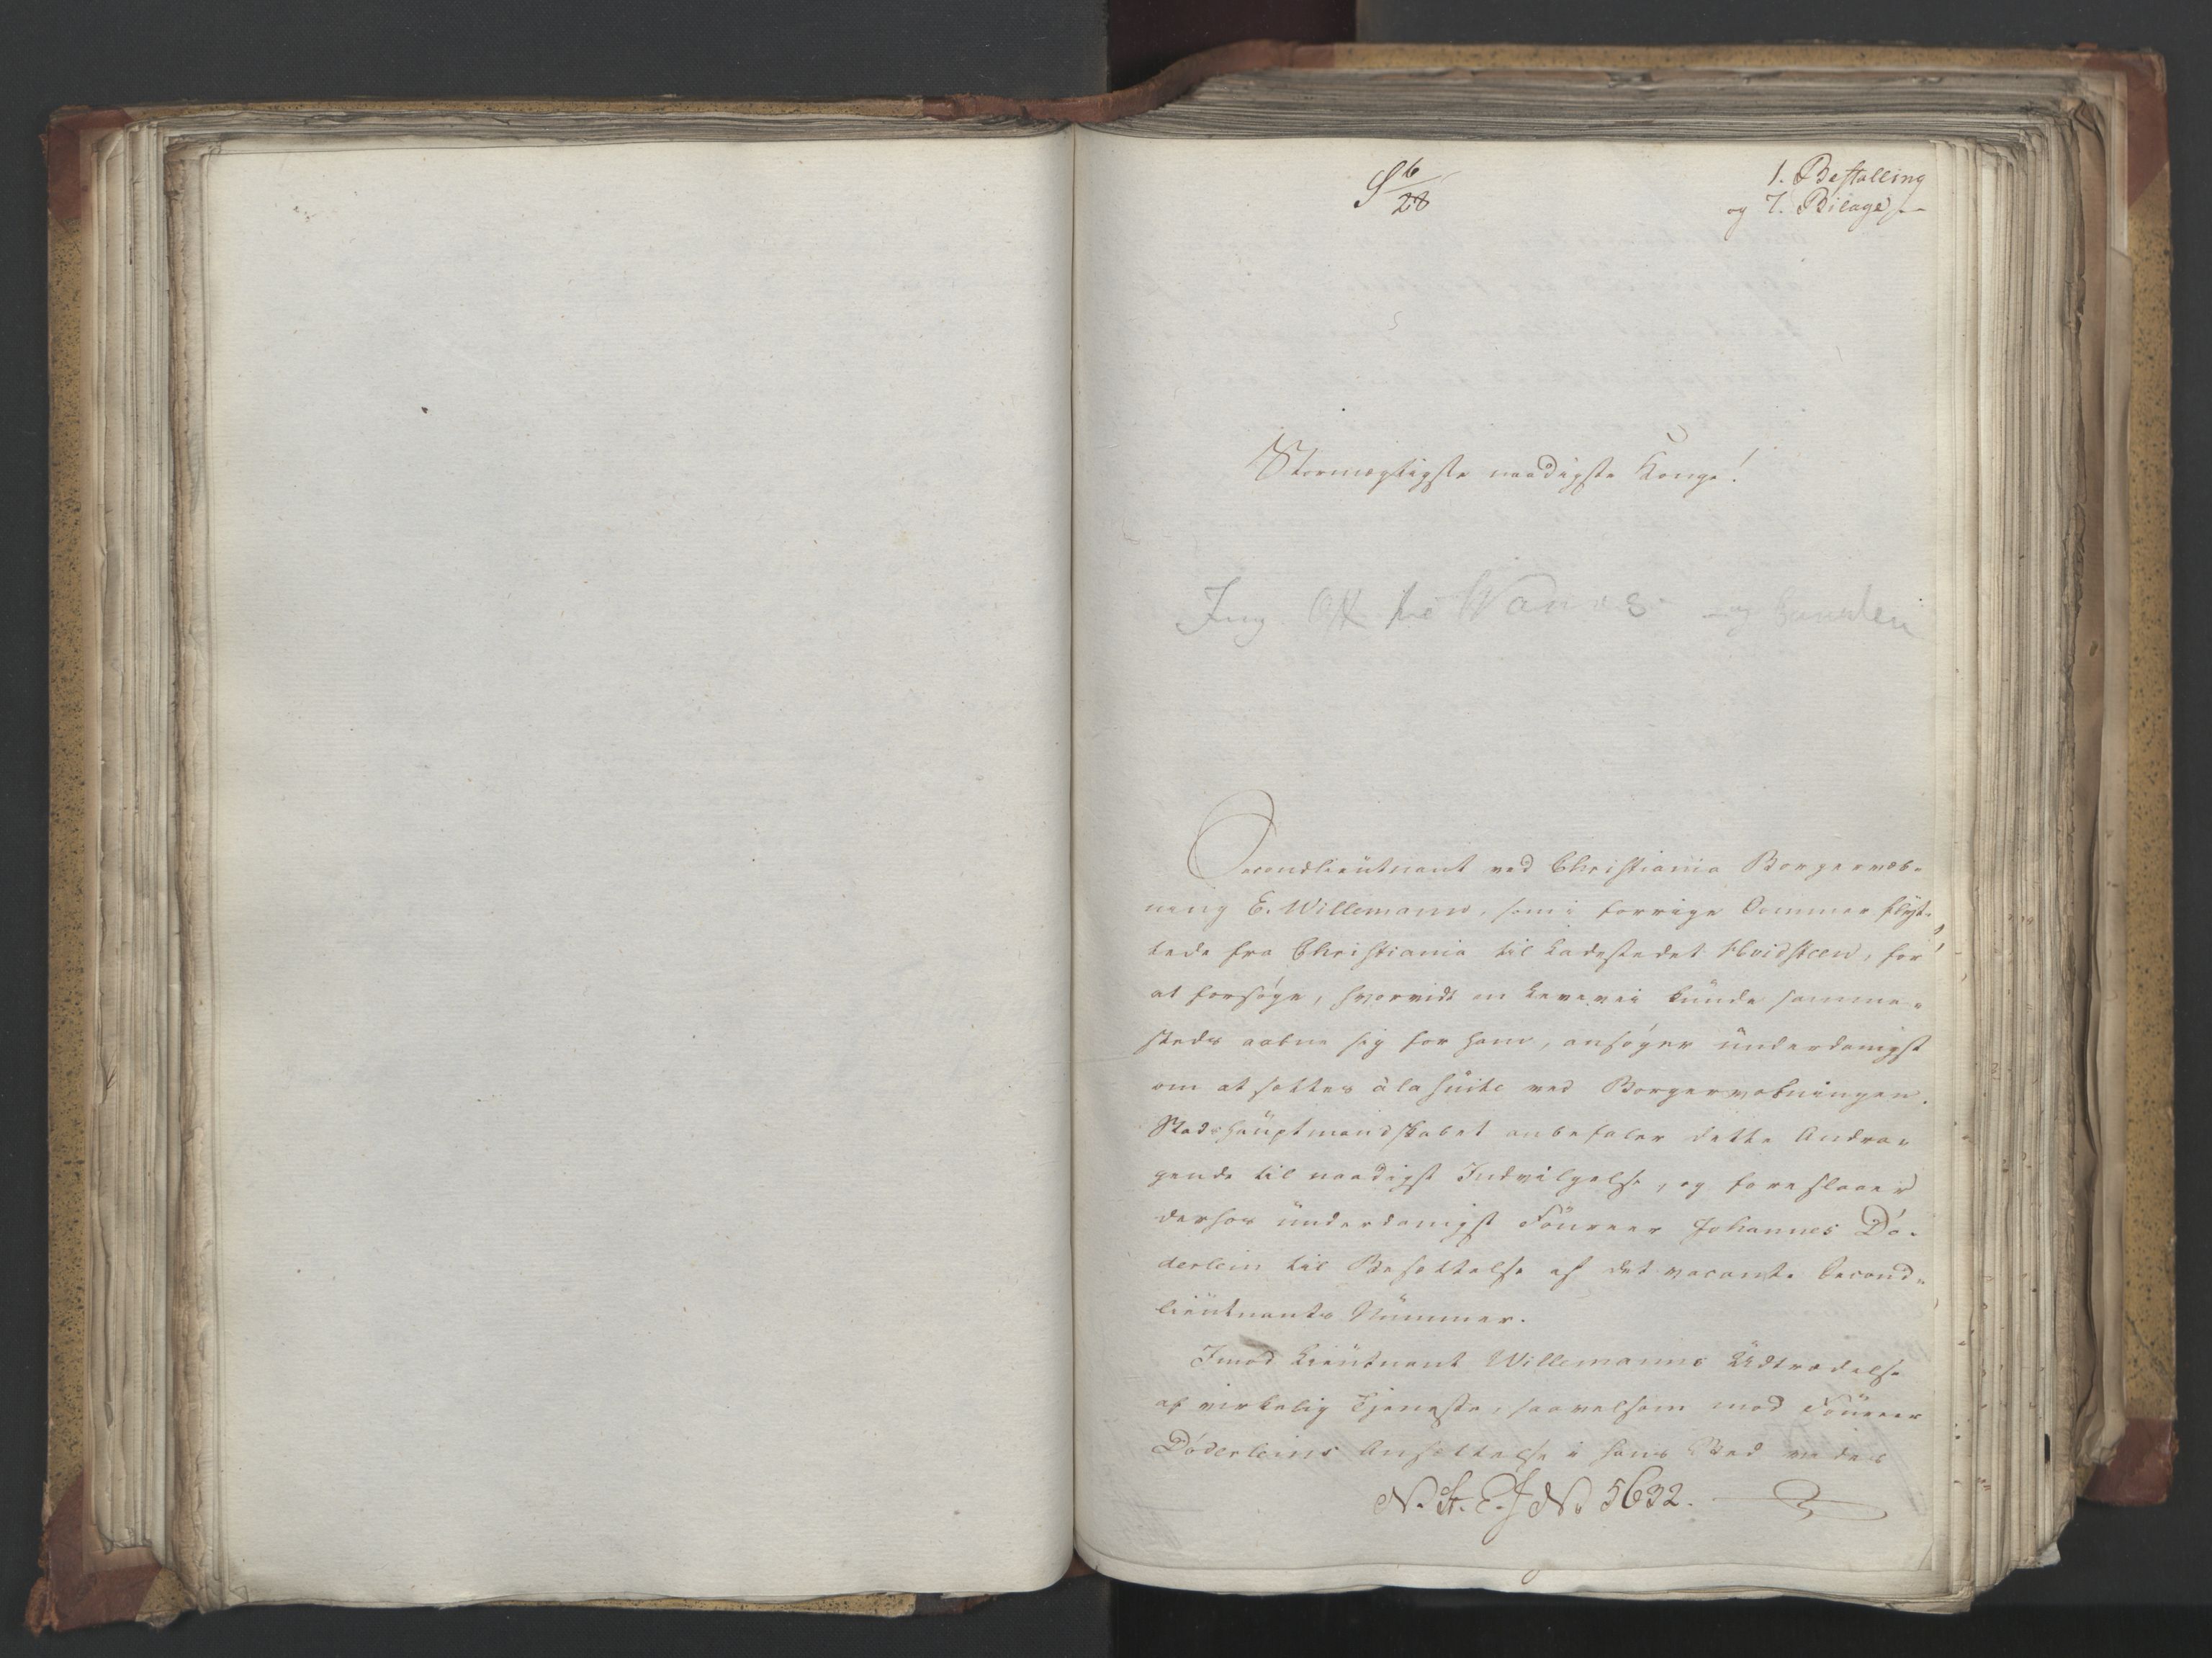 S 6/28
1. Bestalling
og 7. Bilage
Stormægtigste naadigste Konge!
Secondlieutnant ved Christiania Borgervæb-
ning E. Willemann, som i forrige Sommer flyt-
tede fra Christiania til Ladestedet Hvidsteen, for
at forsøge, hvorvidt en Levevei kunde samme-
steds aabne sig for ham, ansøger underdanigst
om at sættes à la suite ved Borgervæbningen.
Stadshauptmandskabet anbefaler dette Andra-
gende til naadigst Indvilgelse, og foreslaaer
derhos underdanigst Foureer Johannes Dö-
derlein til Besættelse af det vacante Second-
lieutnants Nummer.
Imod Lieutnant Willemanns Udtrædelse
af virkelig Tjeneste, saavelsom mod Foureer
Döderleins Ansættelse i hans Sted vides
N. St. E. J. No 5632.